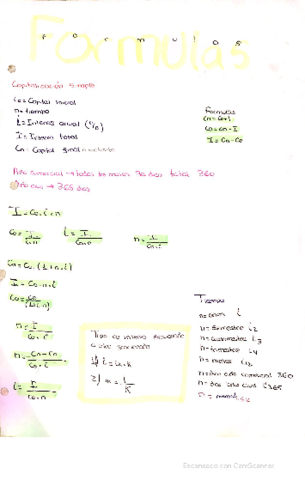 Formulas
Capitalización Simple
Co = Capital inicial
n = tiempo
i = Interes anual (%)
I = Interes total
Cn - Capital final
Formulas
Cn = Co + I
Co = Cn - I
I = Cn - Co
Año comercial → todos los meses 30 dias total 360
Año civil → 365 dias
I = Co · i · n
Co = I / i·n
i = I / Co·n
n = I / Co·i
Cn = Co · (1 + n · i)
I = Co · n · i
n = I / Co · i
n = Cn - Co / Co · i
i = I / Co · n
Tipo de interes
1) i = ik · k
Tiempo
n = años i
n = semestre i2
n = cuatrimestre i3
n = trimestre i4
n = meses i12
n = dias año comercial 360
n = dias año civil i365
Escaneado con CamScanner